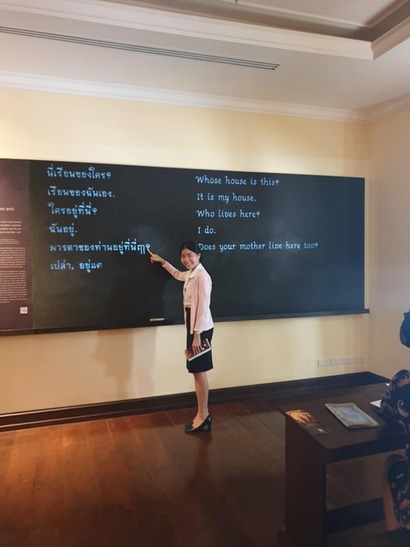 นี่เรือนของใคร?
Whose house is this?
เรือนของฉันเอง.
It is my house.
ใครอยู่ที่นี่?
Who lives here?
ฉันอยู่.
I do.
มารดาของท่านอยู่ที่นี่ฤๅ?
Does your mother live here too?
เปล่า, อยู่แต่